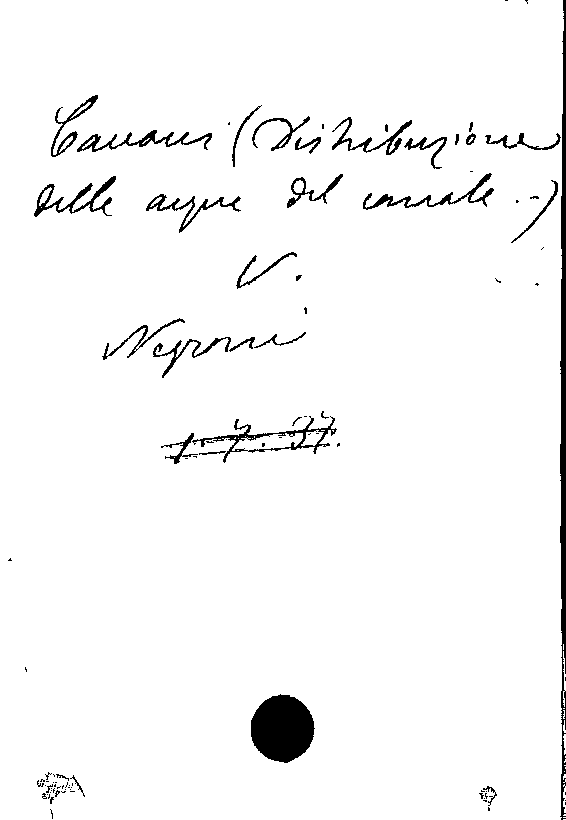 Cavour (Distribuzione
delle acque del canale -)
V.
Negroni
1.7.37.